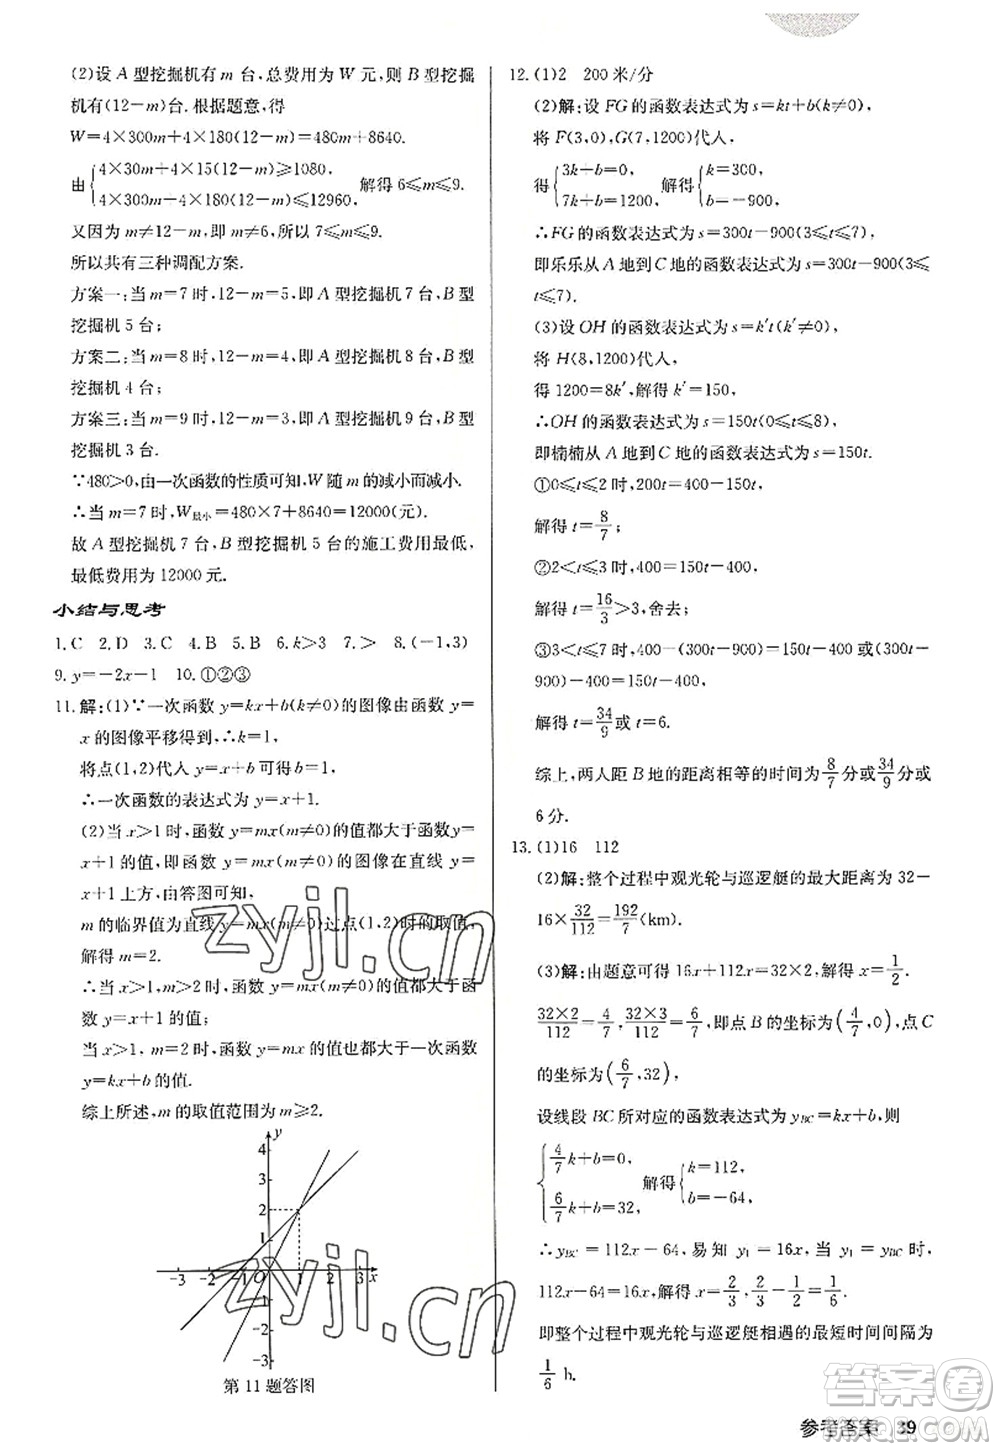 (2)设 A 型挖掘机有 m 台,总费用为 W 元,则 B 型挖掘
机有(12-m)台.根据题意,得
W=4×300m+4×180(12-m)=480m+8640.
由{4×30m+4×15(12-m)≥1080,
4×300m+4×180(12-m)≤12960, 解得 6≤m≤9.
又因为 m≠12-m,即 m≠6,所以 7≤m≤9.
所以共有三种调配方案.
方案一:当 m=7 时,12-m=5,即 A 型挖掘机 7 台,B 型
挖掘机 5 台;
方案二:当 m=8 时,12-m=4,即 A 型挖掘机 8 台,B 型
挖掘机 4 台;
方案三:当 m=9 时,12-m=3,即 A 型挖掘机 9 台,B 型
挖掘机 3 台.
∵480>0,由一次函数的性质可知,W 随 m 的减小而减小.
∴当 m=7 时,W最小=480×7+8640=12000(元).
故 A 型挖掘机 7 台,B 型挖掘机 5 台的施工费用最低,
最低费用为 12000 元.
小结与思考
1.C 2.D 3.C 4.B 5.B 6.k>3 7.> 8.(-1,3)
9.y=-2x-1 10.①②③
11.解:(1)∵一次函数 y=kx+b(k≠0)的图像由函数 y=
x 的图像平移得到,∴k=1,
将点(1,2)代人 y=x+b 可得 b=1,
∴一次函数的表达式为 y=x+1.
(2)当 x>1 时,函数 y=mx(m≠0)的值都大于函数 y=
x+1 的值,即函数 y=mx(m≠0)的图像在直线 y=
x+1 上方,由答图可知,
m 的临界值为直线 y=mx(m≠0)过点(1,2)时的取值,
解得 m=2.
∴当 x>1,m>2 时,函数 y=mx(m≠0)的值都大于函
数 y=x+1 的值;
当 x>1,m=2 时,函数 y=mx 的值也都大于一次函数
y=kx+b 的值.
综上所述,m 的取值范围为 m≥2.
y
4
3
2
1
-3 -2 -1 O 1 2 3 x
-1
-2
-3
第 11 题答图
12.(1)2 200 米/分
(2)解:设 FG 的函数表达式为 s=kt+b(k≠0),
将 F(3,0),G(7,1200)代人,
得{3k+b=0,
7k+b=1200, 解得{k=300,
b=-900,
∴FG 的函数表达式为 s=300t-900(3≤t≤7),
即乐乐从 A 地到 C 地的函数表达式为 s=300t-900(3≤
t≤7).
(3)设 OH 的函数表达式为 s=k′t(k′≠0),
将 H(8,1200)代人,
得 1200=8k′,解得 k′=150,
∴OH 的函数表达式为 s=150t(0≤t≤8),
即楠楠从 A 地到 C 地的函数表达式为 s=150t.
①0≤t≤2 时,400-200t=400-150t,
解得 t=8/7;
②2<t≤3 时,400=150t-400,
解得 t=16/3>3,舍去;
③3<t≤7 时,400-(300t-900)=150t-400 或 300t-
900-400=150t-400,
解得 t=34/9 或 t=6.
综上,两人距 B 地的距离相等的时间为 8/7 分或 34/9 分或
6 分.
13.(1)16 112
(2)解:整个过程中观光轮与巡逻艇的最大距离为 32-
16×32/112=192/7(km).
(3)解:由题意可得 16x+112x=32×2,解得 x=1/2.
32×2/112=4/7,32×3/112=6/7,即点 B 的坐标为(4/7,0),点 C
的坐标为(6/7,32),
设线段 BC 所对应的函数表达式为 yBC=kx+b,则
{4/7k+b=0,
6/7k+b=32, 解得{k=112,
b=-64,
∴yBC=112x-64,易知 y1=16x,当 y1=yBC时,16x=
112x-64,解得 x=2/3,2/3-1/2=1/6.
即整个过程中观光轮与巡逻艇相遇的最短时间间隔为
1/6 h.
zyjl.cn
zyjl.cn
答案圈
MXQE.COM
参考答案 39